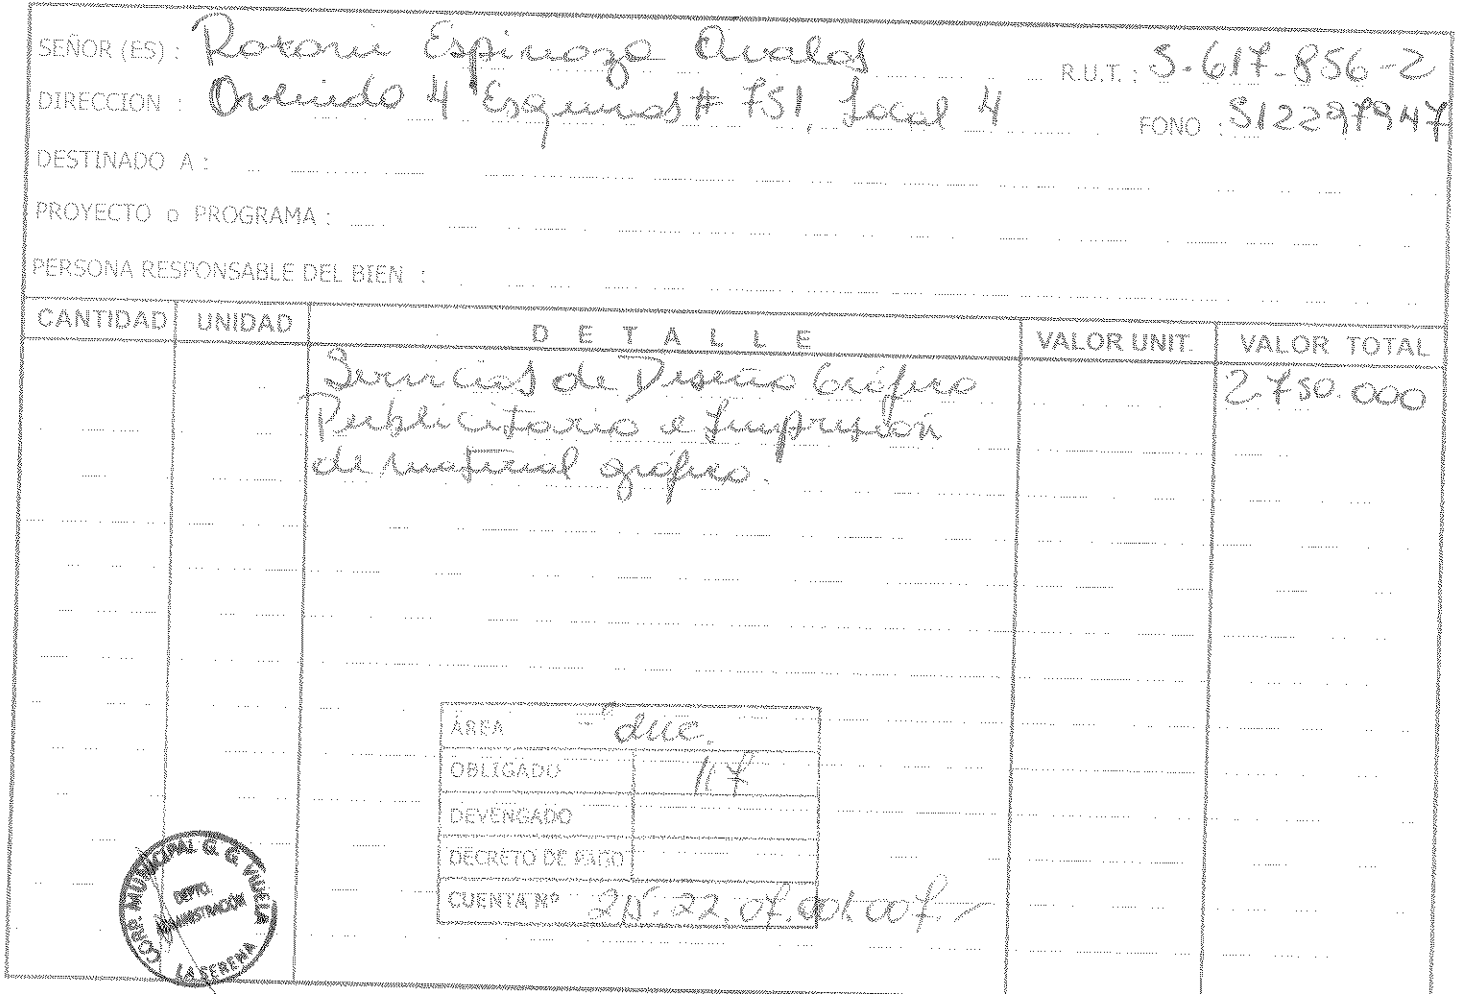 SEÑOR (ES) : Rosone Espinoza Avalos R.U.T. : 5.617.856-2
DIRECCION : Avenida 4 Esquinas # 751, Local 4 FONO : 512297947
DESTINADO A :
PROYECTO o PROGRAMA :
PERSONA RESPONSABLE DEL BIEN :
CANTIDAD UNIDAD DETALLE VALOR UNIT. VALOR TOTAL
Servicios de Diseño Gráfico 2.750.000
Publicitario e Impresión
de material gráfico.
ÁREA duc.
OBLIGADO 117
DEVENGADO
DECRETO DE PAGO
CUENTA Nº 215.22.07.001.007.-
CORP. MUNICIPAL G. G. VIDELA
DEPTO.
ADMINISTRACIÓN
LA SERENA